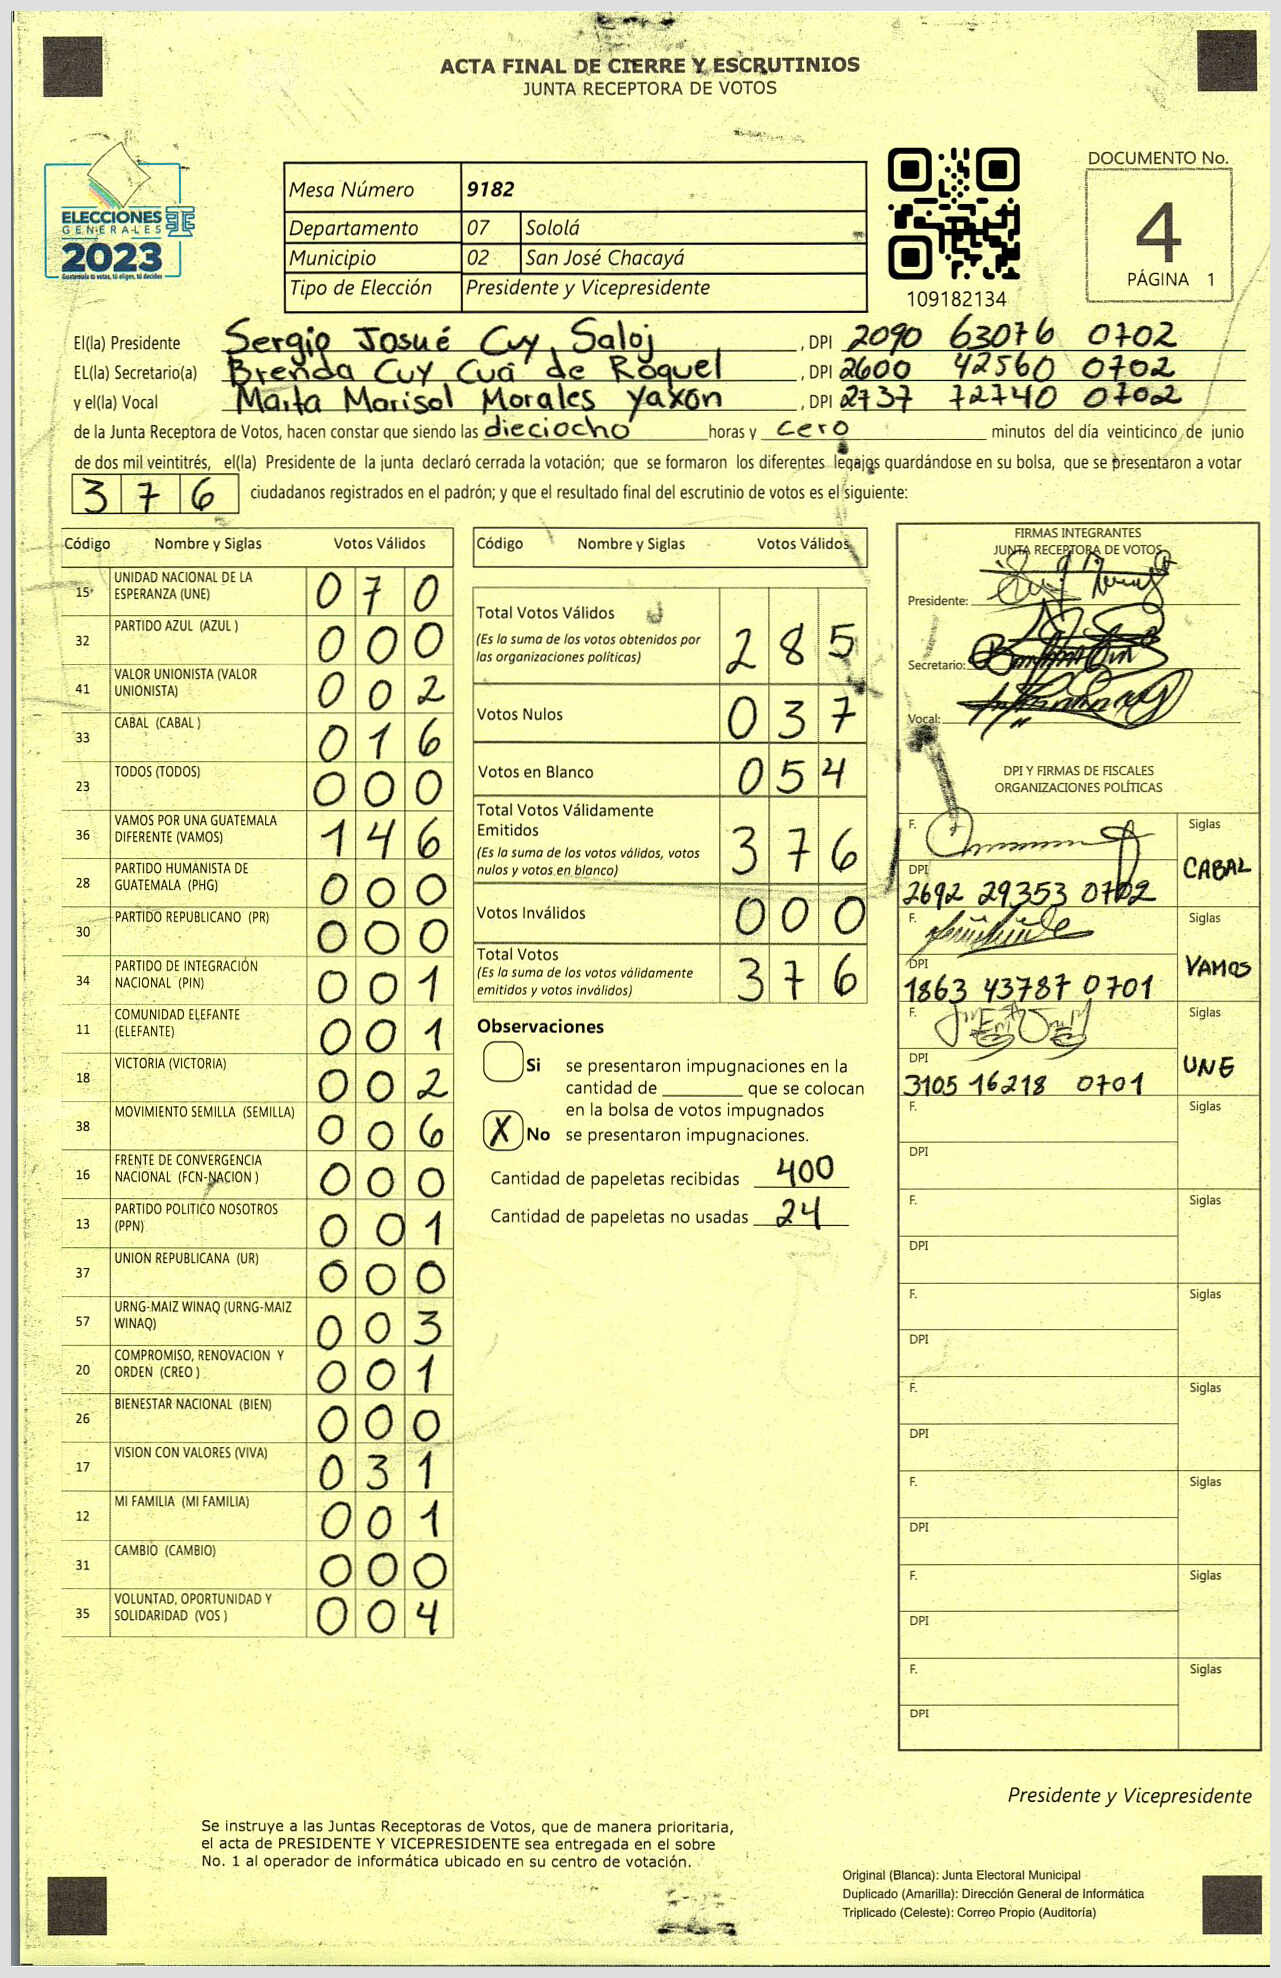 ACTA FINAL DE CIERRE Y ESCRUTINIOS
JUNTA RECEPTORA DE VOTOS
ELECCIONES
GENERALES
2023
Guatemala tú votas, tú eliges, tú decides
Mesa Número 9182
Departamento 07 Sololá
Municipio 02 San José Chacayá
Tipo de Elección Presidente y Vicepresidente
109182134
DOCUMENTO No.
4
PÁGINA 1
El(la) Presidente Sergio Josué Cuy Saloj, DPI 2090 63076 0702
EL(la) Secretario(a) Brenda Cuy Cuá de Roquel, DPI 2600 42560 0702
y el(la) Vocal Marta Marisol Morales Yaxón, DPI 2737 72740 0702
de la Junta Receptora de Votos, hacen constar que siendo las dieciocho horas y cero minutos del día veinticinco de junio
de dos mil veintitrés, el(la) Presidente de la junta declaró cerrada la votación; que se formaron los diferentes legajos guardándose en su bolsa, que se presentaron a votar
376 ciudadanos registrados en el padrón; y que el resultado final del escrutinio de votos es el siguiente:
Código Nombre y Siglas Votos Válidos
15 UNIDAD NACIONAL DE LA ESPERANZA (UNE) 070
32 PARTIDO AZUL (AZUL ) 000
41 VALOR UNIONISTA (VALOR UNIONISTA) 002
33 CABAL (CABAL ) 016
23 TODOS (TODOS) 000
36 VAMOS POR UNA GUATEMALA DIFERENTE (VAMOS) 146
28 PARTIDO HUMANISTA DE GUATEMALA (PHG) 000
30 PARTIDO REPUBLICANO (PR) 000
34 PARTIDO DE INTEGRACIÓN NACIONAL (PIN) 001
11 COMUNIDAD ELEFANTE (ELEFANTE) 001
18 VICTORIA (VICTORIA) 002
38 MOVIMIENTO SEMILLA (SEMILLA) 006
16 FRENTE DE CONVERGENCIA NACIONAL (FCN-NACION ) 000
13 PARTIDO POLITICO NOSOTROS (PPN) 001
37 UNION REPUBLICANA (UR) 000
57 URNG-MAIZ WINAQ (URNG-MAIZ WINAQ) 003
20 COMPROMISO, RENOVACION Y ORDEN (CREO ) 001
26 BIENESTAR NACIONAL (BIEN) 000
17 VISION CON VALORES (VIVA) 031
12 MI FAMILIA (MI FAMILIA) 001
31 CAMBIO (CAMBIO) 000
35 VOLUNTAD, OPORTUNIDAD Y SOLIDARIDAD (VOS ) 004
Código Nombre y Siglas Votos Válidos
Total Votos Válidos
(Es la suma de los votos obtenidos por
las organizaciones políticas) 285
Votos Nulos 037
Votos en Blanco 054
Total Votos Válidamente
Emitidos
(Es la suma de los votos válidos, votos
nulos y votos en blanco) 376
Votos Inválidos 000
Total Votos
(Es la suma de los votos válidamente
emitidos y votos inválidos) 376
Observaciones
Si se presentaron impugnaciones en la
cantidad de ________ que se colocan
en la bolsa de votos impugnados
X No se presentaron impugnaciones.
Cantidad de papeletas recibidas 400
Cantidad de papeletas no usadas 24
FIRMAS INTEGRANTES
JUNTA RECEPTORA DE VOTOS
Presidente:
Secretario:
Vocal:
DPI Y FIRMAS DE FISCALES
ORGANIZACIONES POLÍTICAS
F. Siglas
CABAL
DPI
2692 29353 0702
F. Siglas
VAMOS
DPI
1863 43787 0701
F. Siglas
UNE
DPI
3105 16218 0701
F. Siglas
DPI
F. Siglas
DPI
F. Siglas
DPI
F. Siglas
DPI
F. Siglas
DPI
F. Siglas
DPI
F. Siglas
DPI
Presidente y Vicepresidente
Se instruye a las Juntas Receptoras de Votos, que de manera prioritaria,
el acta de PRESIDENTE Y VICEPRESIDENTE sea entregada en el sobre
No. 1 al operador de informática ubicado en su centro de votación.
Original (Blanca): Junta Electoral Municipal
Duplicado (Amarilla): Dirección General de Informática
Triplicado (Celeste): Correo Propio (Auditoría)